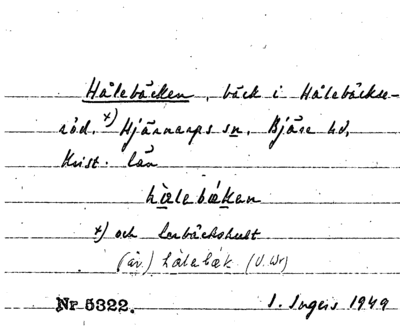 Hålebäcken, bäck i Hålebäckse-
röd. x) Hjärnarps sn. Bjäre hd.
Krist. län
hålebäken
x) och Lerbäckshult
(äv.) hålebäk (U. Wr)
Nr 5322. I. Ingers 1949